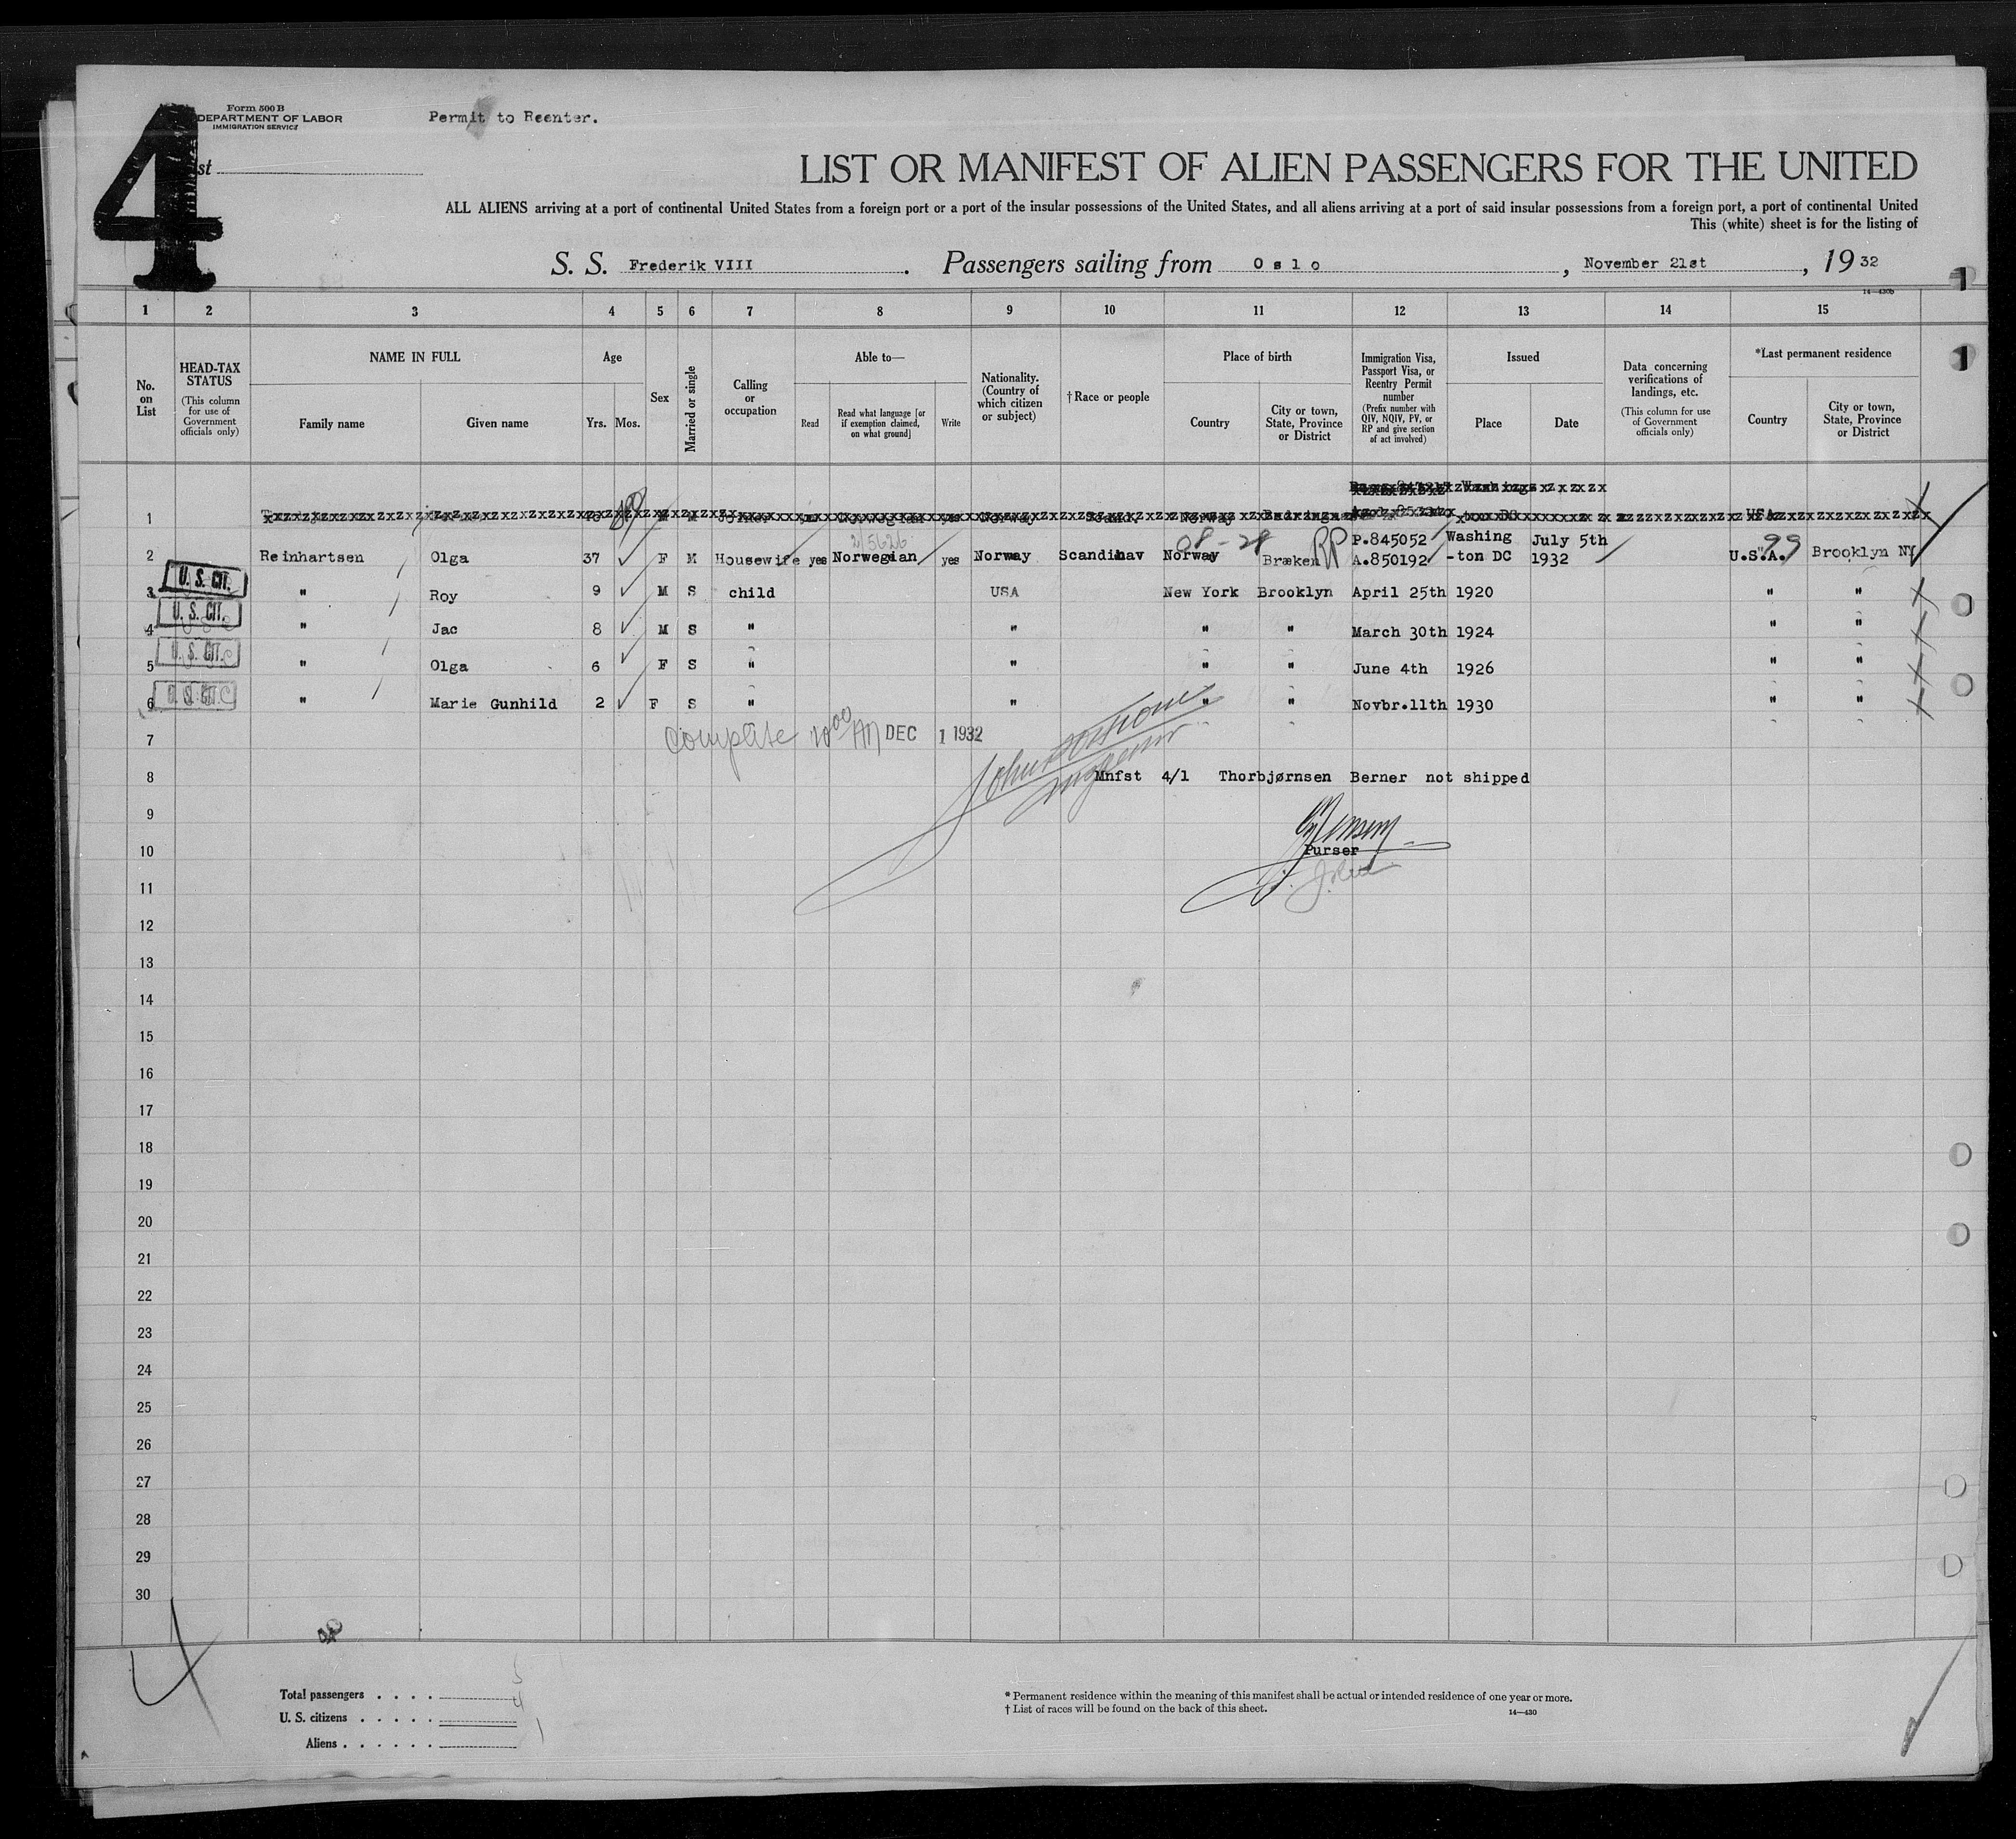 4
Form 500 B
DEPARTMENT OF LABOR
IMMIGRATION SERVICE
Permit to Reenter.
st
LIST OR MANIFEST OF ALIEN PASSENGERS FOR THE UNITED
ALL ALIENS arriving at a port of continental United States from a foreign port or a port of the insular possessions of the United States, and all aliens arriving at a port of said insular possessions from a foreign port, a port of continental United
This (white) sheet is for the listing of
S. S. Frederik VIII . Passengers sailing from Oslo , November 21st , 19 32
14—430b
1 2 3 4 5 6 7 8 9 10 11 12 13 14 15
No. on List
HEAD-TAX STATUS (This column for use of Government officials only)
NAME IN FULL Family name Given name
Age Yrs. Mos.
Sex
Married or single
Calling or occupation
Able to— Read Read what language [or if exemption claimed, on what ground] Write
Nationality. (Country of which citizen or subject)
† Race or people
Place of birth Country City or town, State, Province or District
Immigration Visa, Passport Visa, or Reentry Permit number (Prefix number with QIV, NQIV, PV, or RP and give section of act involved)
Issued Place Date
Data concerning verifications of landings, etc. (This column for use of Government officials only)
*Last permanent residence Country City or town, State, Province or District
1
2/5626 08-28 RP 99
2 Reinhartsen Olga 37 F M Housewife yes Norwegian yes Norway Scandinav Norway Bræken P.845052 A.850192 Washing -ton DC July 5th 1932 U.S.A. Brooklyn NY
U. S. CIT.
3 " Roy 9 M S child USA New York Brooklyn April 25th 1920 " "
U. S. CIT.
4 " Jac 8 M S " " " " March 30th 1924 " "
U. S. CIT.
5 " Olga 6 F S " " " " June 4th 1926 " "
U. S. CIT.
6 " Marie Gunhild 2 F S " " " " Novbr.11th 1930 " "
7 Complete 10 00 AM DEC 1 1932
8 Mnfst 4/1 Thorbjørnsen Berner not shipped
9
10 Purser
11
12
13
14
15
16
17
18
19
20
21
22
23
24
25
26
27
28
29
30
Total passengers . . . . 5
U. S. citizens . . . . . 4
Aliens . . . . . . 1
* Permanent residence within the meaning of this manifest shall be actual or intended residence of one year or more.
† List of races will be found on the back of this sheet.
14—430